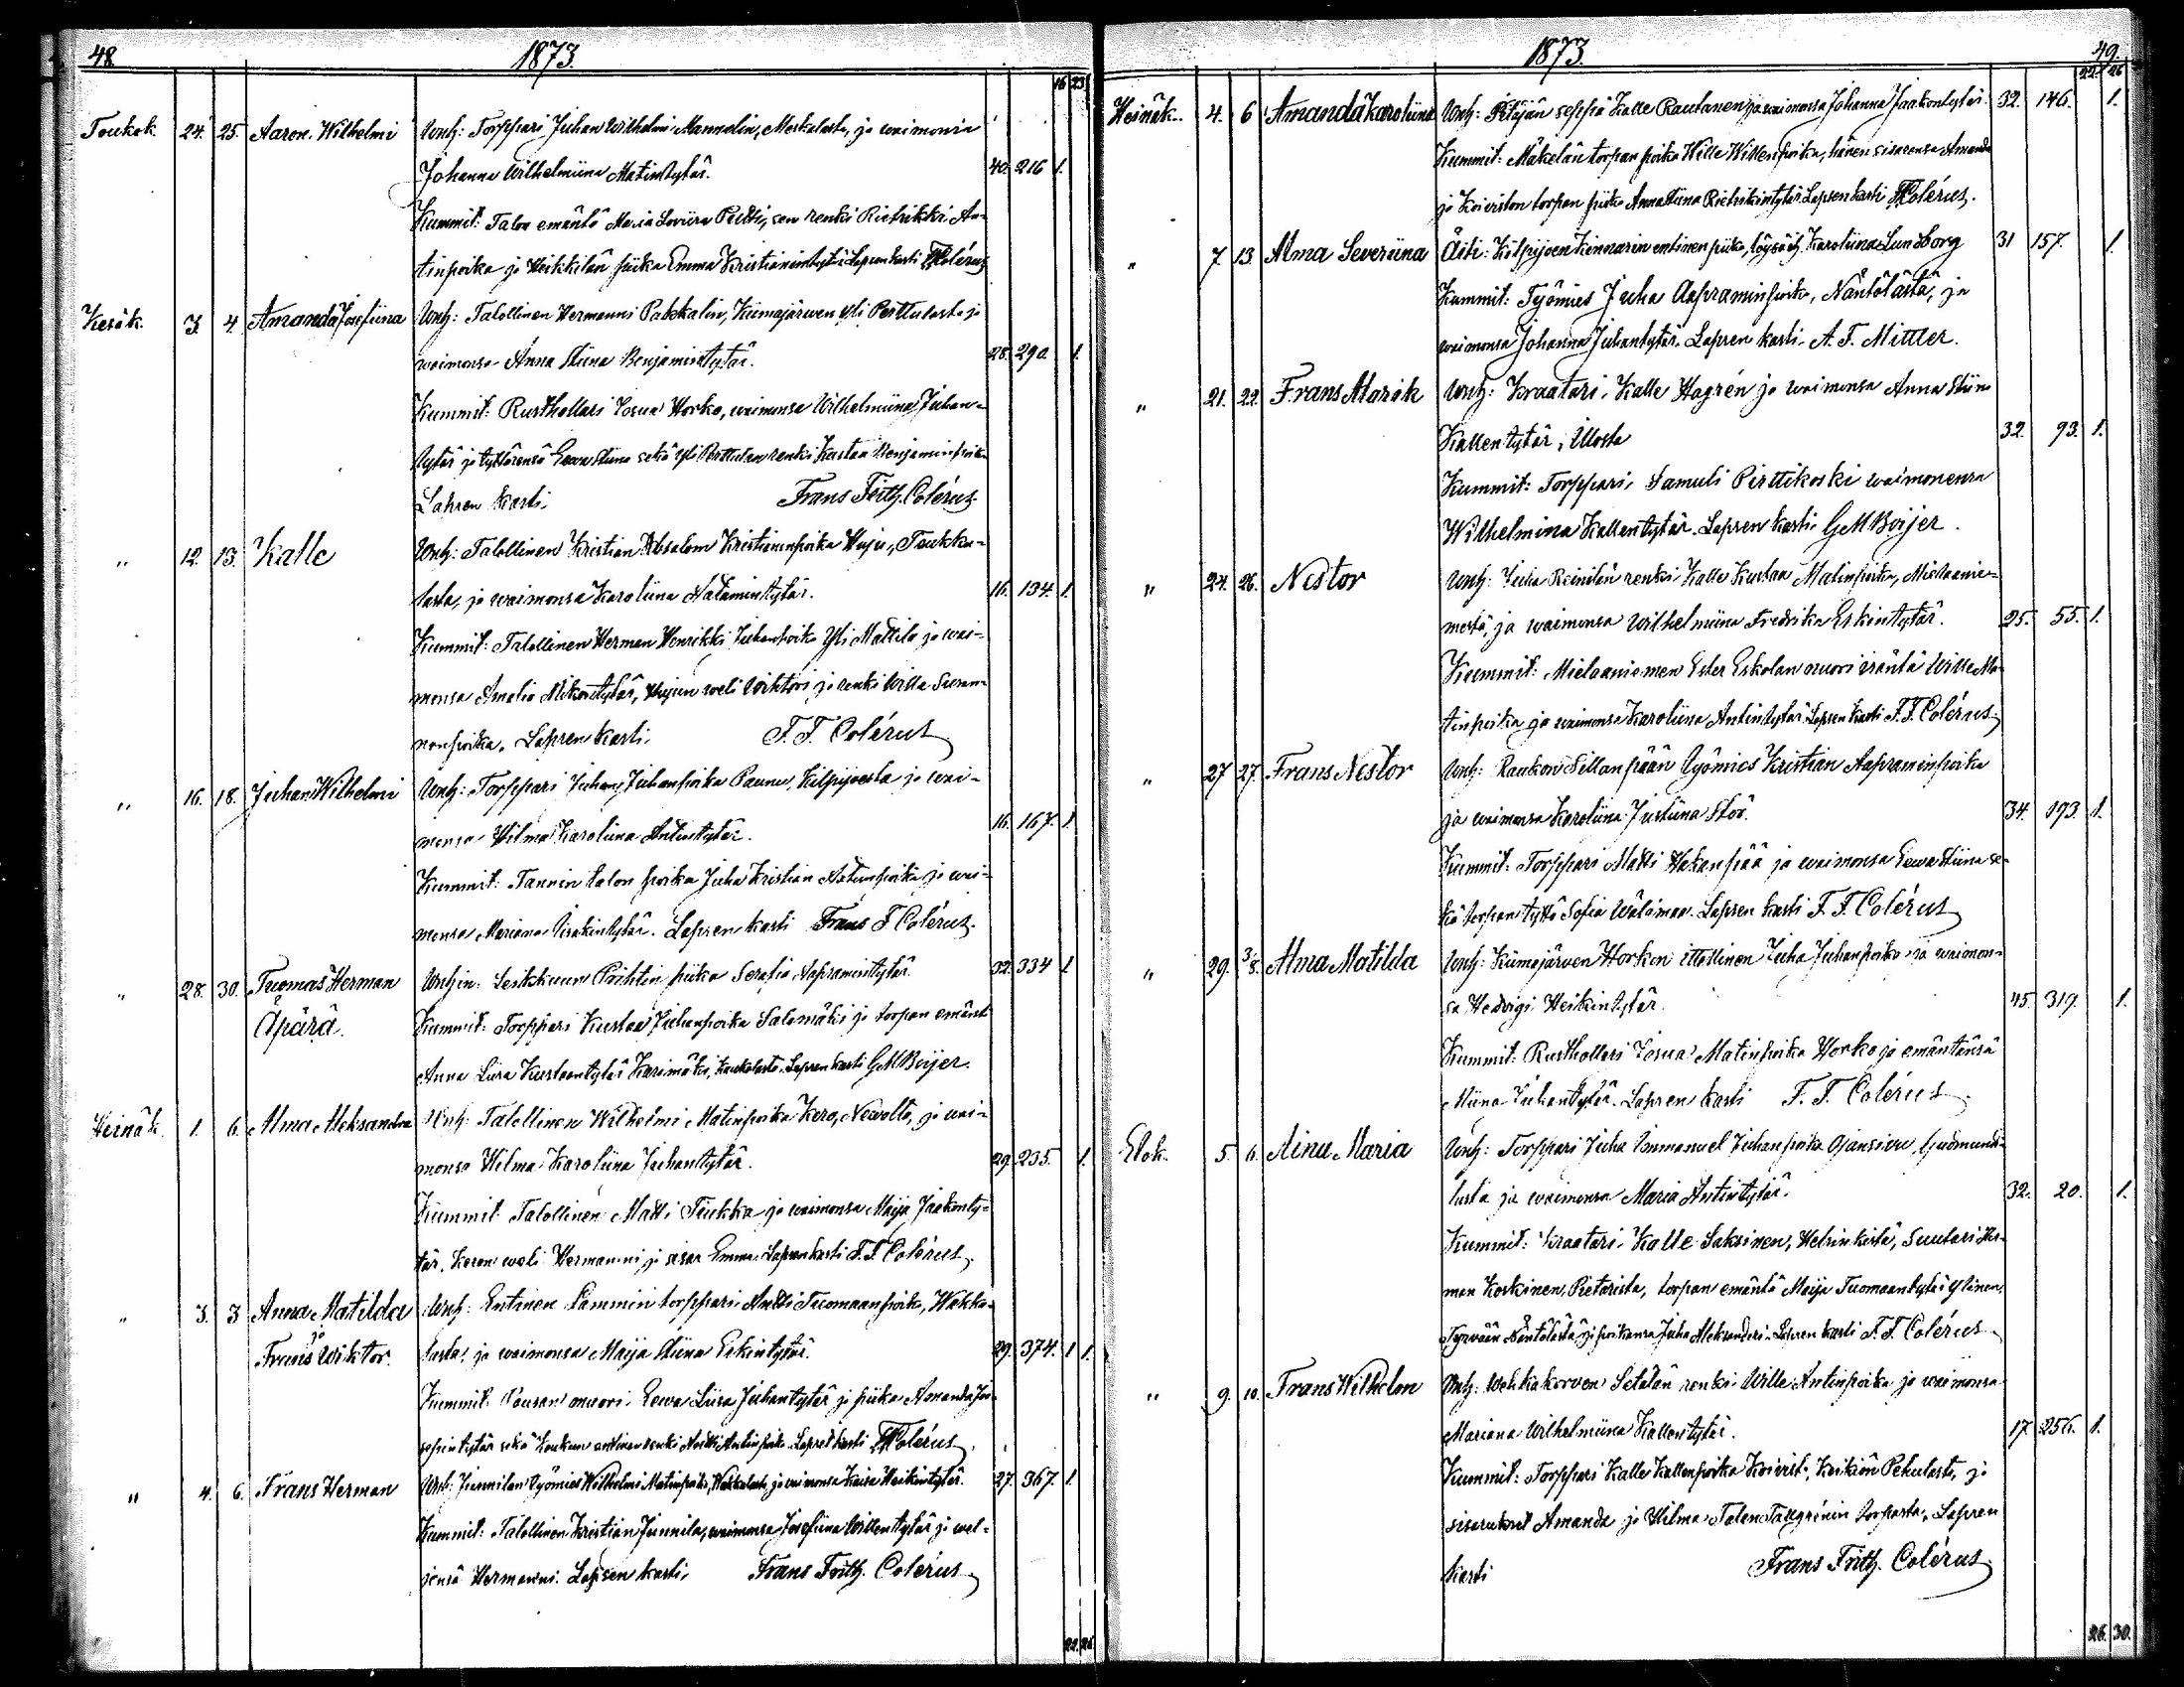 48
1873.
16 23
Toukok. 24. 25. Aaron Wilhelmi Wanh: Torppari Juhan Wilhelmi Mannelin, Meskalasta, ja waimonsa
Johanna Wilhelmiina Matintytär. 40. 216 1.
Kummit: Talon emäntä Maria Loviisa Pertti, sen renki Rietrikki An-
tinpoika ja Heikkilän piika Emma Kristianintytär Lapsen kasti FFColérus
Kesäk. 3 4. Amanda Josefiina Wanh: Talollinen Hermanni Pakkalin, Kiimajärwen Yli Perttulasta ja
waimonsa Anna Stiina Benjamintytär. 28. 290. 1.
Kummit: Rusthollari Josua Horko, waimonsa Wilhelmiina Juhan-
tytär ja tyttärensä Eewa Stiina sekä Yli Perttulan renki Kustaa Benjaminpoika
Lapsen kasti. Frans Frith. Colérus
" 12. 13. Kalle Wanh: Talollinen Kristian Absalom Kristianinpoika Huju, Taukka-
lasta, ja waimonsa Karoliina Natamintytär. 16. 134. 1.
Kummit: Talollinen Herman Henrikki Juhanpoika Yli Mattila ja wai-
monsa Amalia Mikontytär, Hujun weli Wihtori ja renki Wille
nonpoika. Lapsen kasti. F.F. Colérus
" 16. 18. Juhan Wilhelmi Wanh: Torppari Juhan Juhanpoika Paunu, Kilpijoesta ja wai-
monsa Hilma Karoliina Antintytär. 16. 167. 1
Kummit: Tannin talon poika Juha Kristian ja wai-
monsa Mariana Iisakintytär. Lapsen kasti Frans F. Colérus.
" 28. 30. Tuomas Herman Wanhin: piika Serafia Aapramintytär. 32. 334 1
Äpärä. Kummit: Torppari Kustaa Juhanpoika Salomäki ja torpan emäntä
Anna Liisa Kustaantytär Karimäki, Lapsen kasti GMBoijer.
Heinäk. 1. 6. Alma Aleksandra Wanh: Talollinen Wilhelmi Matinpoika Kero, ja wai-
monsa Hilma Karoliina Juhantytär. 29. 235. 1.
Kummit Talollinen Matti Tiukka ja waimonsa Maija Jaakonty-
tär, Keron weli Hermanni ja sisar Emma. Lapsen kasti F.F. Colérus
" 3. 3 Anna Matilda Wanh: Entinen Tammin torppari Antti Tuomaanpoika, Wakka-
ja Frans Wiktor. lasta, ja waimonsa Maija Stiina Eskintytär. 29. 374. 1 1.
Kummit: muori Eewa Liisa Juhantytär ja piika Amanda Joo-
sepintytär sekä entinen renki Antti Antinpoika. Lapset kasti FFColérus
" 4. 6. Frans Herman Wanh: Junnilan työmies Wilhelmi Matinpoika, Wakkalasta, ja waimonsa Kaisa Heikintytär. 27. 367. 1.
Kummit: Talollinen Kristian Junnila, waimonsa Josefiina Willentytär ja wel-
jensä Hermanni. Lapsen kasti. Frans Frith. Colérus
22. 26.
49.
1873.
22. 26
Heinäk. 4. 6 Amanda Karoliina Wanh: Pitäjän seppä Kalle Rautanen ja waimonsa Johanna Jaakontytär. 32. 146. 1.
Kummit: Mäkelän torpan poika Wille Willenpoika, hänen sisarensa Amanda
ja Koiviston torpan piika Anna Stiina Rietrikintytär Lapsen kasti FFColérus.
" 7. 13. Alma Severiina Äiti: Kilpijoen Kinnarin entinen piika, Karoliina Lundborg 31 157. 1.
Kummit: Työmies Juha Aapraminpoika, Näntölästä, ja
waimonsa Johanna Juhantytär. Lapsen kasti. A. F. Mittler.
" 21. 22. Frans Marik Wanh: Kraatari Kalle Hagrén ja waimonsa Anna Stiina
Kallentytär, Illosta 32. 93. 1.
Kummit: Torppari Samuli Pirttikoski waimonensa
Wilhelmina Kallentytär. Lapsen kasti. GMBoijer.
" 24. 26. Nestor Wanh: Juha Reinilän renki Kalle Kustaa Matinpoika, Mielaanie-
mestä, ja waimonsa Wilhelmiina Fredrika Erkintytär. 25. 55. 1.
Kummit: Mielaaniemen Eskolan nuori isäntä Wille Ma-
tinpoika ja waimonsa Karoliina Antintytär. Lapsen kasti F.F. Colérus.
" 27 27. Frans Nestor Wanh: Raukon Sillanpään työmies Kristian Aapraminpoika
ja waimonsa Karoliina Justiina Stor. 34. 193. 1.
Kummit: Torppari Matti Hakanpää ja waimonsa Eewa Stiina se-
kä torpan tyttö Sofia Wälimaa. Lapsen kasti F.F. Colérus
" 29. 3/8. Alma Matilda Wanh: Kiimajärven Horkon itsellinen Juha Juhanpoika ja waimon-
sa Hedvigi Heikintytär. 45. 319. 1.
Kummit: Rusthollari Josua Matinpoika Horko ja emäntänsä
Miina Juhantytär. Lapsen kasti F. F. Colérus.
Elok. 5. 6. Aina Maria Wanh: Torppari Juha Emmanuel Juhanpoika Ojansivu, Gudmundi-
lasta ja waimonsa Maria Antintytär. 32. 20. 1.
Kummit: Kraatari Kalle Saksinen, Helsinkistä, Suutari Her-
man Koskinen, Pietarista, torpan emäntä Maija Tuomaantytär Ylinen,
Tyrvään Näntölästä ja poikansa Juha Aleksanderi. Lapsen kasti F.F. Colérus
" 9. 10. Frans Wilhelm Wanh: Wehkakorven Setälän renki Wille Antinpoika ja waimonsa
Mariana Wilhelmiina Kallentytär. 17. 256. 1.
Kummit: Torppari Kalle Kallenpoika Koivisto, ja
sisarukset Amanda ja Hilma torpasta, Lapsen
kasti Frans Frith. Colérus.
26. 30.